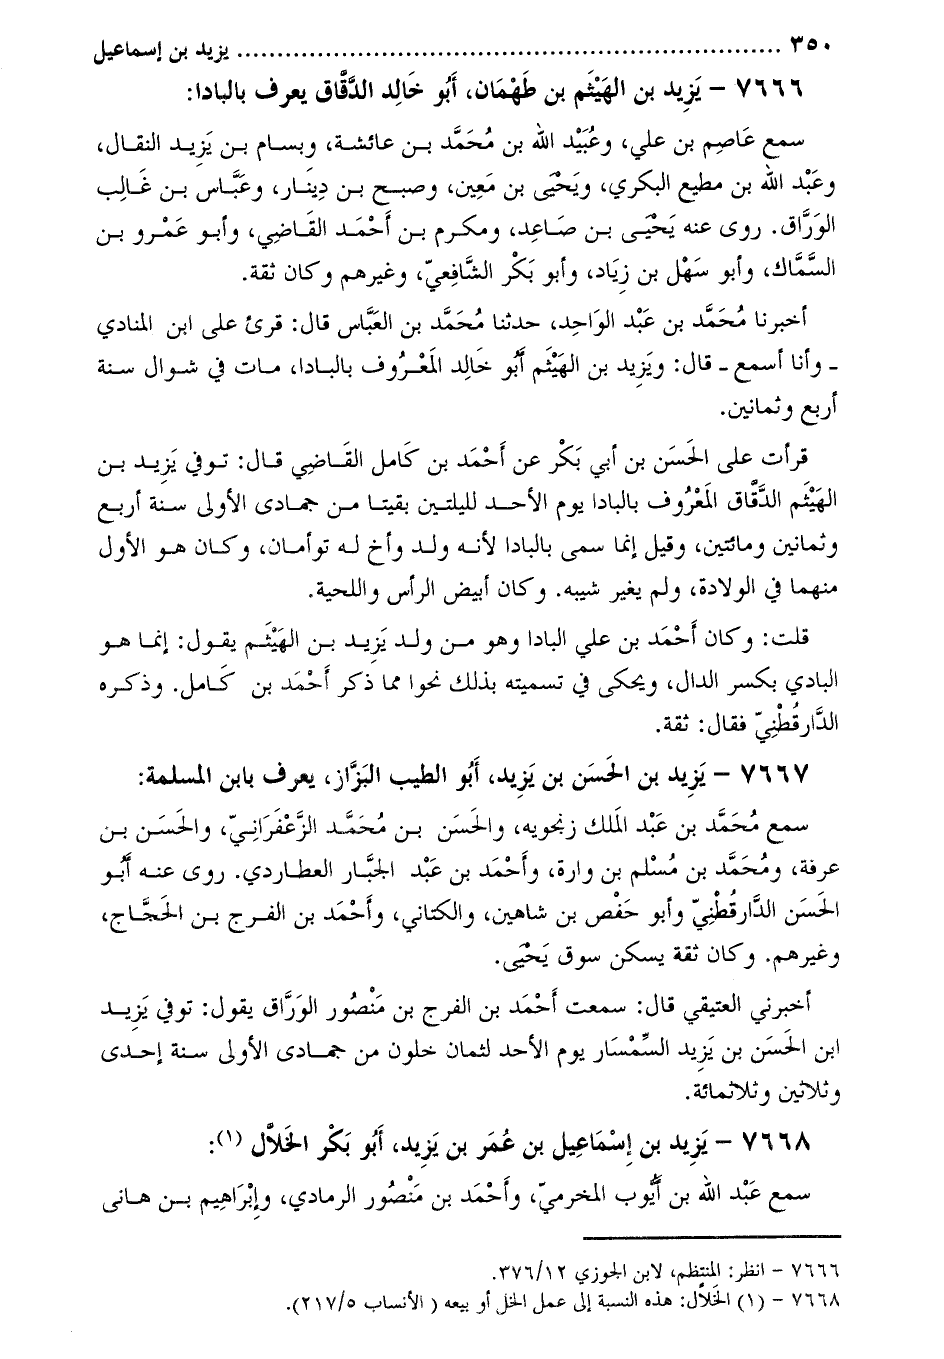 ٣٥٠ ........................................................................ يزيد بن إسماعيل
٧٦٦٦ – يَزِيد بن الهَيْثَم بن طَهْمَان، أَبُو خَالِد الدَّقَّاق يعرف بالبادا:
سمع عَاصِم بن علي، وعُبَيْد الله بن مُحَمَّد بن عائشة، وبسام بن يَزِيد النقال،
وعَبْد الله بن مطيع البكري، ويَحْيَى بن مَعِين، وصبح بن دِينار، وعَبَّاس بن غَالِب
الوَرَّاق. روى عنه يَحْيَى بن صَاعِد، ومكرم بن أَحْمَد القَاضِي، وأبو عَمْرو بن
السَّمَّاك، وأبو سَهْل بن زِيَاد، وأبو بَكْر الشَّافِعيّ، وغيرهم وكان ثقة.
أخبرنا مُحَمَّد بن عَبْد الوَاحِد، حدثنا مُحَمَّد بن العَبَّاس قال: قرئ على ابن المنادي
ـ وأنا أسمع ـ قال: ويَزِيد بن الهَيْثَم أَبُو خَالِد المَعْرُوف بالبادا، مات في شوال سنة
أربع وثمانين.
قرأت على الحَسَن بن أبي بَكْر عن أَحْمَد بن كَامل القَاضِي قال: توفي يَزِيد بن
الهَيْثَم الدَّقَّاق المَعْرُوف بالبادا يوم الأحد لليلتين بقيتا من جمادى الأولى سنة أربع
وثمانين ومائتين، وقيل إنما سمى بالبادا لأنه ولد وأخ له توأمان، وكان هو الأول
منهما في الولادة، ولم يغير شيبه. وكان أبيض الرأس واللحية.
قلت: وكان أَحْمَد بن علي البادا وهو من ولد يَزِيد بن الهَيْثَم يقول: إنما هو
البادي بكسر الدال، ويحكى في تسميته بذلك نحوا مما ذكر أَحْمَد بن كَامل. وذكره
الدَّارقُطْنِيّ فقال: ثقة.
٧٦٦٧ – يَزِيد بن الحَسَن بن يَزِيد، أَبُو الطيب البَزَّاز، يعرف بابن المسلمة:
سمع مُحَمَّد بن عَبْد الملك زنجويه، والحَسَن بن مُحَمَّد الزَّعْفَرَانِيّ، والحَسَن بن
عرفة، ومُحَمَّد بن مُسْلم بن وارة، وأَحْمَد بن عَبْد الجَبَّار العطاردي. روى عنه أَبُو
الحَسَن الدَّارقُطْنِيّ وأبو حَفْص بن شاهين، والكتاني، وأَحْمَد بن الفرج بن الحَجَّاج،
وغيرهم. وكان ثقة يسكن سوق يَحْيَى.
أخبرني العتيقي قال: سمعت أَحْمَد بن الفرج بن مَنْصُور الوَرَّاق يقول: توفي يَزِيد
ابن الحَسَن بن يَزِيد السِّمْسَار يوم الأحد لثمان خلون من جمادى الأولى سنة إحدى
وثلاثين وثلاثمائة.
٧٦٦٨ – يَزِيد بن إسْمَاعِيل بن عُمَر بن يَزِيد، أَبُو بَكْر الخَلاَّل (١):
سمع عَبْد الله بن أَيُّوب المخرميّ، وأَحْمَد بن مَنْصُور الرمادي، وإبْرَاهِيم بن هانى
٧٦٦٦ – انظر: المنتظم، لابن الجوزي ٣٧٦/١٢.
٧٦٦٨ – (١) الخَلاَّل: هذه النسبة إلى عمل الخل أو بيعه ( الأنساب ٢١٧/٥).